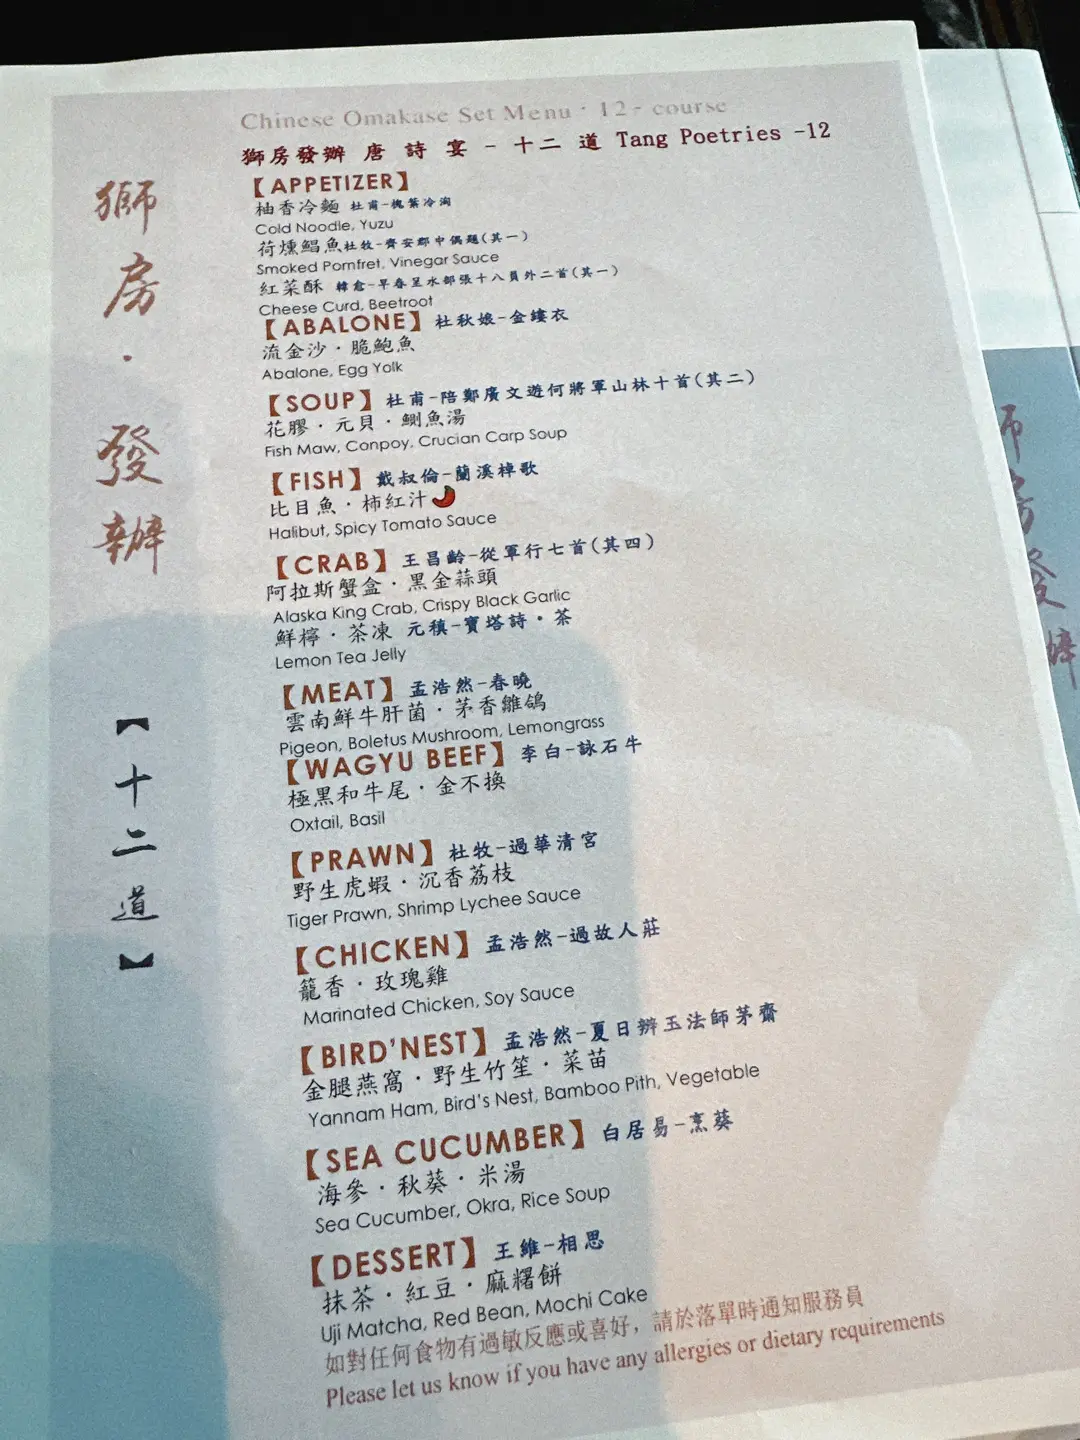 Chinese Omakase Set Menu · 12- course
獅房發辦 唐 詩 宴 - 十二 道 Tang Poetries -12
【APPETIZER】
柚香冷麵 杜甫-槐葉冷淘
Cold Noodle, Yuzu
荷燻鯧魚 杜牧-齊安郡中偶題(其一)
Smoked Pomfret, Vinegar Sauce
紅菜酥 韓愈-早春呈水部張十八員外二首(其一)
Cheese Curd, Beetroot
【ABALONE】 杜秋娘-金縷衣
流金沙·脆鮑魚
Abalone, Egg Yolk
【SOUP】 杜甫-陪鄭廣文遊何將軍山林十首(其二)
花膠·元貝·鯽魚湯
Fish Maw, Conpoy, Crucian Carp Soup
【FISH】 戴叔倫-蘭溪棹歌
比目魚·柿紅汁
Halibut, Spicy Tomato Sauce
【CRAB】 王昌齡-從軍行七首(其四)
阿拉斯蟹盒·黑金蒜頭
Alaska King Crab, Crispy Black Garlic
鮮檸·茶凍 元稹-寶塔詩·茶
Lemon Tea Jelly
【MEAT】 孟浩然-春曉
雲南鮮牛肝菌·茅香雛鴿
Pigeon, Boletus Mushroom, Lemongrass
【WAGYU BEEF】 李白-詠石牛
極黑和牛尾·金不換
Oxtail, Basil
【PRAWN】 杜牧-過華清宮
野生虎蝦·沉香荔枝
Tiger Prawn, Shrimp Lychee Sauce
【CHICKEN】 孟浩然-過故人莊
籠香·玫瑰雞
Marinated Chicken, Soy Sauce
【BIRD'NEST】 孟浩然-夏日辨玉法師茅齋
金腿燕窩·野生竹笙·菜苗
Yannam Ham, Bird's Nest, Bamboo Pith, Vegetable
【SEA CUCUMBER】 白居易-烹葵
海參·秋葵·米湯
Sea Cucumber, Okra, Rice Soup
【DESSERT】 王維-相思
抹茶·紅豆·麻糬餅
Uji Matcha, Red Bean, Mochi Cake
如對任何食物有過敏反應或喜好，請於落單時通知服務員
Please let us know if you have any allergies or dietary requirements
獅房·發辦
【十二道】
師房發辦